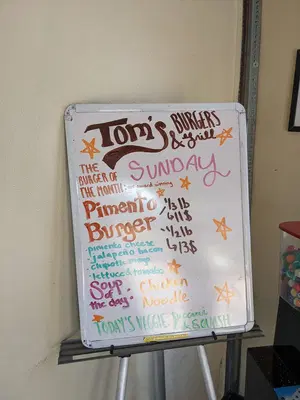 Tom's BURGERS
& Grill
SUNDAY
THE
BURGER OF
THE MONTH
award winning
Pimento
Burger
1/3 lb
11$
1/2 lb
13$
pimento cheese
jalapeño bacon
chipotle mayo
lettuce & tomato
Soup
of the day
Chicken
Noodle
TODAY'S VEGGIE: Zucchini
& SQUASH